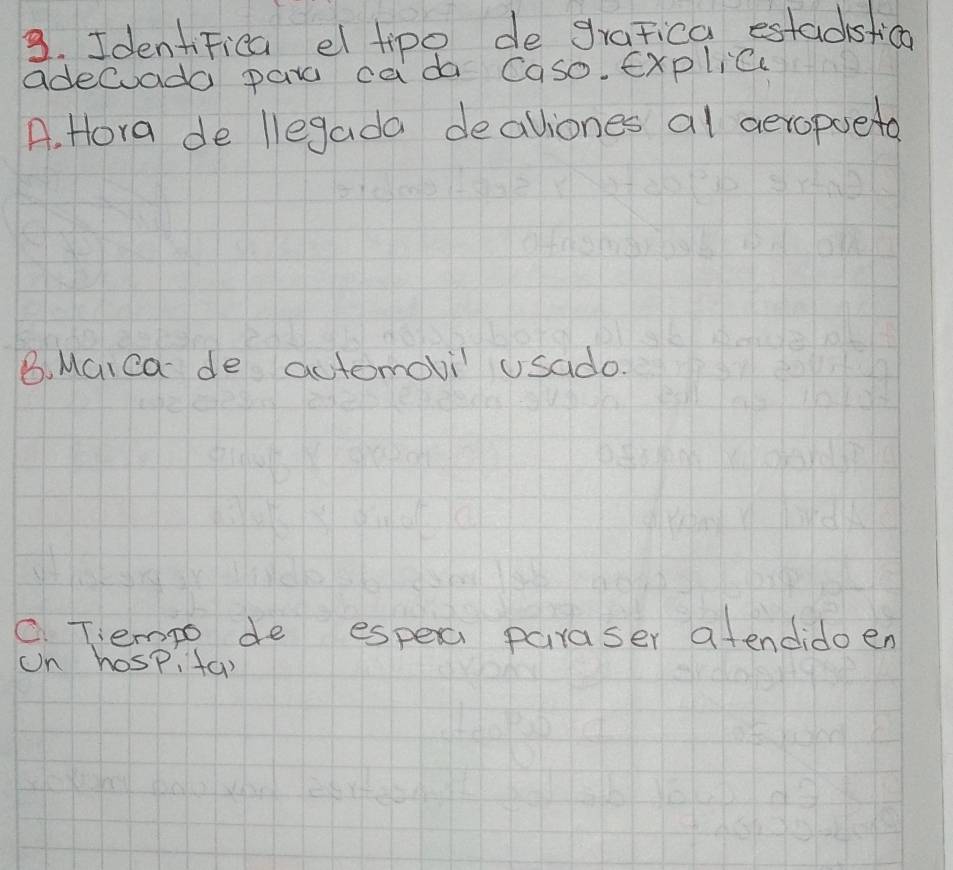 3. Identifica el tipo de grafica estadistica
adecuada para cada caso. Explica
A. Hora de llegada de aviones al aeropueto
B. Marca de automovil usado.
C. Tiempo de espera para ser atendido en
un hospital